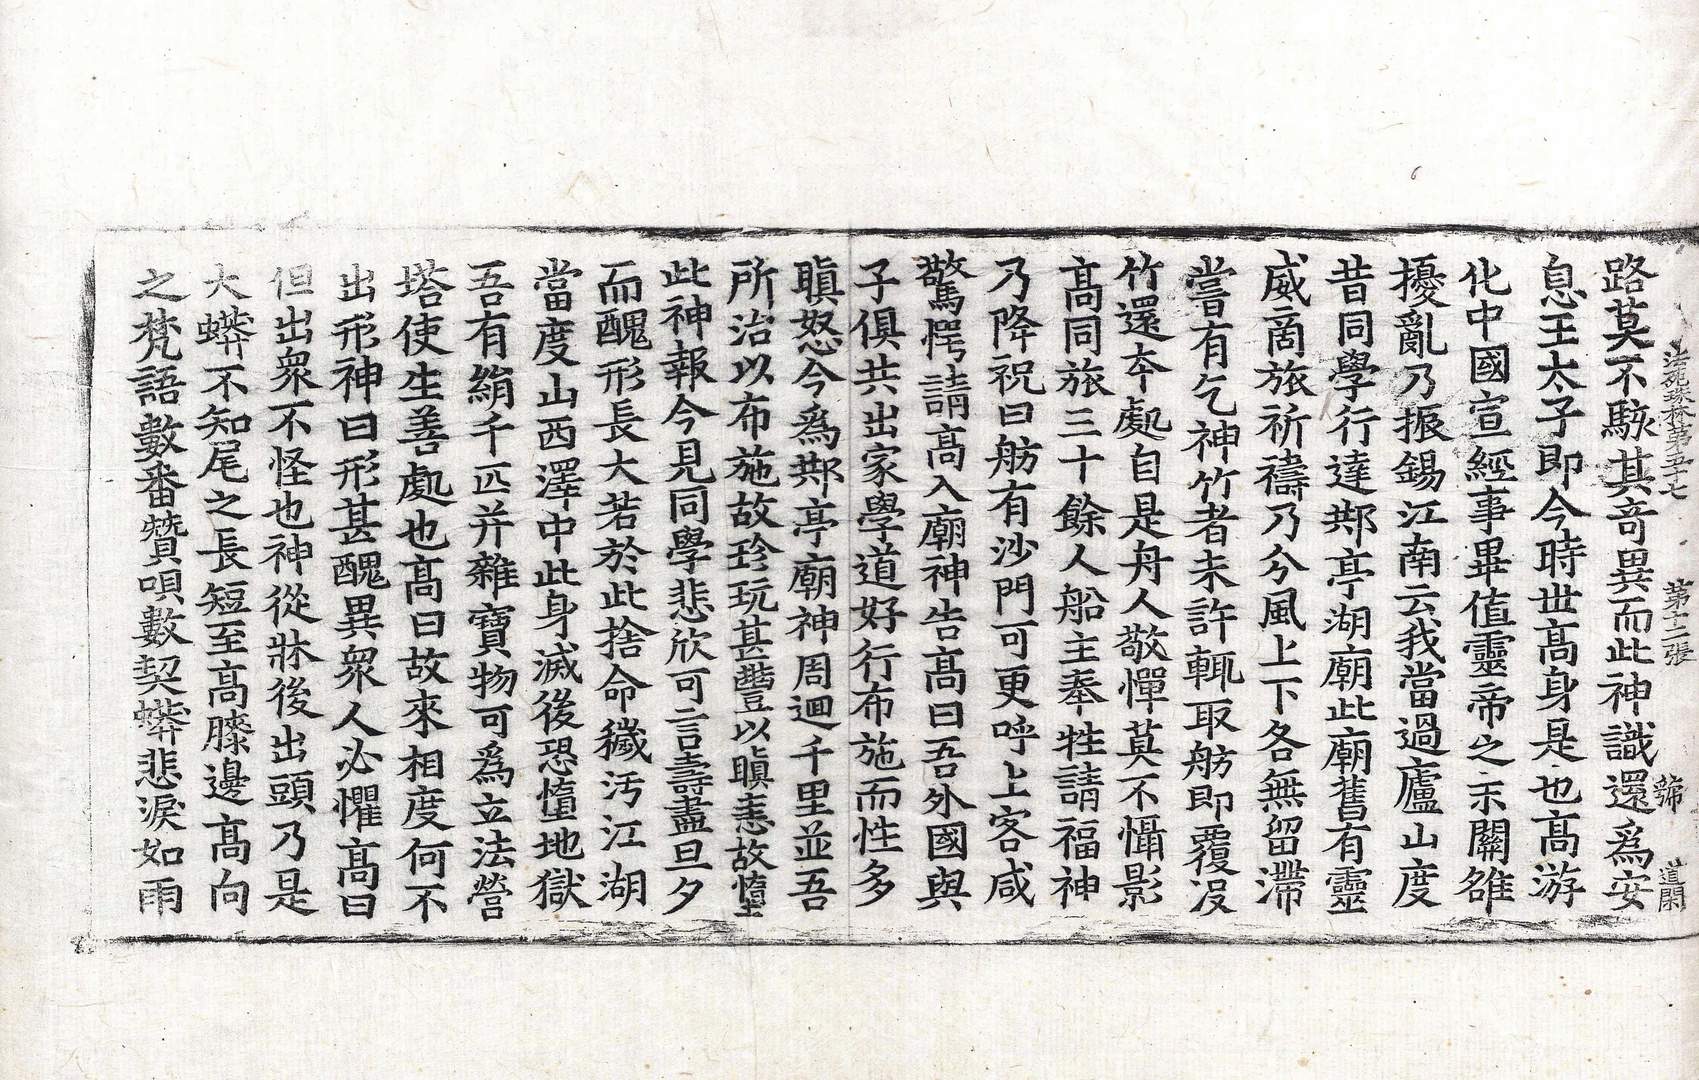 法苑珠林第五十七　第十二張　號　道閑
路莫不駭其竒異而此神識還爲安
息王太子即今時丗髙身是也髙游
化中國宣經事畢值靈帝之末關雒
擾亂乃振錫江南云我當過廬山度
昔同學行達䢼亭湖廟此廟舊有靈
威商旅祈禱乃分風上下各無留滯
嘗有乞神竹者未許輒取舫即覆沒
竹還夲處自是舟人敬憚莫不懾影
髙同旅三十餘人船主奉牲請福神
乃降祝曰舫有沙門可更呼上客咸
驚愕請髙入廟神告髙曰吾外國與
子俱共出家學道好行布施而性多
瞋怒今爲䢼亭廟神周迴千里並吾
所治以布施故珎玩甚豐以瞋恚故墮
此神報今見同學悲欣可言壽盡旦夕
而醜形長大若於此捨命穢汚江湖
當度山西澤中此身滅後恐墮地獄
吾有絹千匹并雜寶物可爲立法營
塔使生善處也髙曰故來相度何不
出形神曰形甚醜異衆人必懼髙曰
但出衆不怪也神從牀後出頭乃是
大蟒不知尾之長短至髙膝邊髙向
之梵語數番讃唄數契蟒悲淚如雨